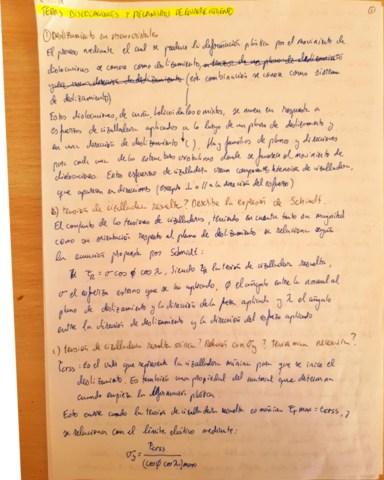 TEMA 5 DISLOCACIONES Y MECANISMOS DE ENDURECIMIENTO
①
① Deslizamiento en monocristales
El proceso mediante el cual se produce la deformación plástica por el movimiento de
dislocaciones se conoce como deslizamiento,
(esta combinación se conoce como sistema
de deslizamiento)
Estas dislocaciones, de cuña, helicoidales o mixtas, se mueven en respuesta a
esfuerzos de cizalladura aplicados a lo largo de un plano de deslizamiento y
en una dirección de deslizamiento. Hay familias de planos y direcciones
para cada una de las estructuras cristalinas donde se favorece el movimiento de
dislocaciones. Estos esfuerzos de cizalladura crean componentes de cizalladura,
que aparecen en direcciones (excepto ⊥ o // a la dirección del esfuerzo)
b) tensión de cizalladura resuelta? Describe la expresión de Schmidt.
El conjunto de las tensiones de cizalladura, teniendo en cuenta tanto su magnitud
como su orientación respecto al plano de deslizamiento se relacionan según
la ecuación propuesta por Schmidt:
τR = σ cos φ cos λ, siendo τR la tensión de cizalladura resuelta,
σ el esfuerzo externo que se ha aplicado, φ el ángulo entre la normal al
plano de deslizamiento y la dirección de la fuerza aplicada y λ el ángulo
entre la dirección de deslizamiento y la dirección del esfuerzo aplicado
c) tensión de cizalladura resuelta crítica? Relación con σy?
τcrss: es el valor que representa la cizalladura mínima para que se inicie el
deslizamiento. Es también una propiedad del material que determina
cuando empieza la deformación plástica
Esto ocurre cuando la tensión de cizalladura resuelta es máxima τR max = τcrss, y
se relaciona con el límite elástico mediante:
σy = τcrss / (cos φ cos λ)max